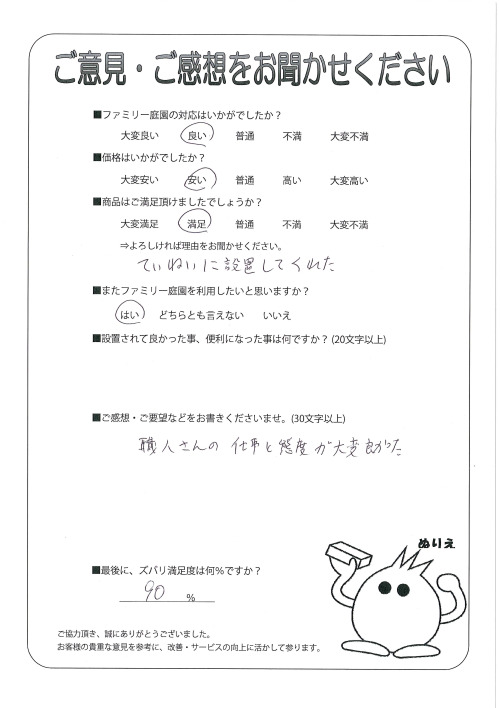 ご意見・ご感想をお聞かせください
■ファミリー庭園の対応はいかがでしたか？
大変良い 良い 普通 不満 大変不満
■価格はいかがでしたか？
大変安い 安い 普通 高い 大変高い
■商品はご満足頂けましたでしょうか？
大変満足 満足 普通 不満 大変不満
⇒よろしければ理由をお聞かせください。
ていねいに設置してくれた
■またファミリー庭園を利用したいと思いますか？
はい どちらとも言えない いいえ
■設置されて良かった事、便利になった事は何ですか？(20文字以上)
■ご感想・ご要望などをお書きくださいませ。(30文字以上)
職人さんの 仕事と態度が大変良かった
ぬりえ
■最後に、ズバリ満足度は何%ですか？
90 %
ご協力頂き、誠にありがとうございました。
お客様の貴重な意見を参考に、改善・サービスの向上に活かして参ります。